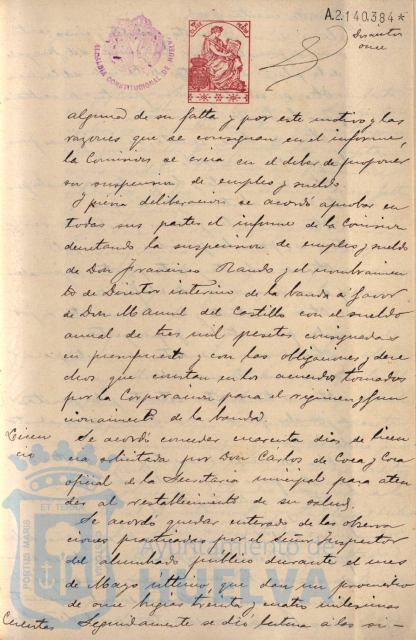 A.2.140.384*
Doscientos
once
ALCALDIA CONSTITUCIONAL DE HUELVA
alguna de su falta y por este motivo y las
razones que se consignan en el informe,
la Comision se creia en el deber de proponer
su suspension de empleo y sueldo.
Y previa deliberacion se acordó aprobar en
todas sus partes el informe de la Comision
decretando la suspension de empleo y sueldo
de Don Francisco Rando y el nombramien
to de Director interino de la banda á favor
de Don Manuel del Castillo con el sueldo
anual de tres mil pesetas consignadas
en presupuesto y con las obligaciones y dere
chos que constan en los acuerdos tomados
por la Corporacion para el regimen y fun
cionamiento de la banda.
Licen
cia
Se acordó conceder cuarenta dias de licen
cia solicitada por Don Carlos de Coca y Coca
oficial de la Secretaria municipal para aten
der al restablecimiento de su salud.
Se acordó quedar enterado de las observa
ciones practicadas por el Señor Inspector
del alumbrado publico durante el mes
de Mayo ultimo, que dan un promedio
de once bujias treinta y cuatro milesimas
Cuentas
Seguidamente se dió lectura á las si-
PORTUS MARIS ET TE
Ayuntamiento de
HUELVA